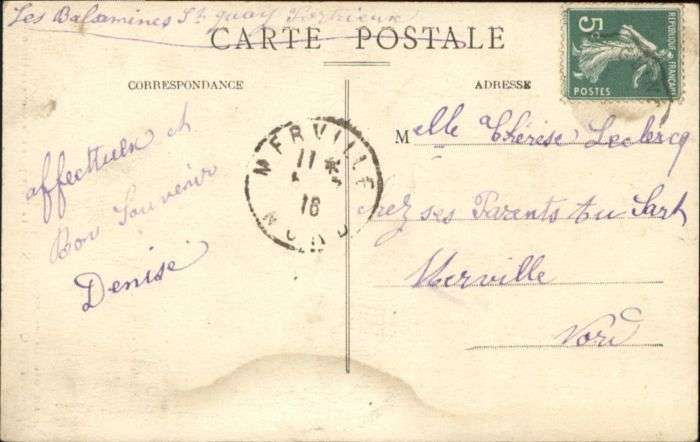 Les Balsamines St quay Portrieux
CARTE POSTALE
CORRESPONDANCE
ADRESSE
RÉPUBLIQUE FRANÇAISE
5c
POSTES
affectueux et
Bon Souvenir
Denise
MERVILLE
11 *
16
NORD
Melle Thérèse Leclercq
chez ses Parents au Sart
Merville
Nord